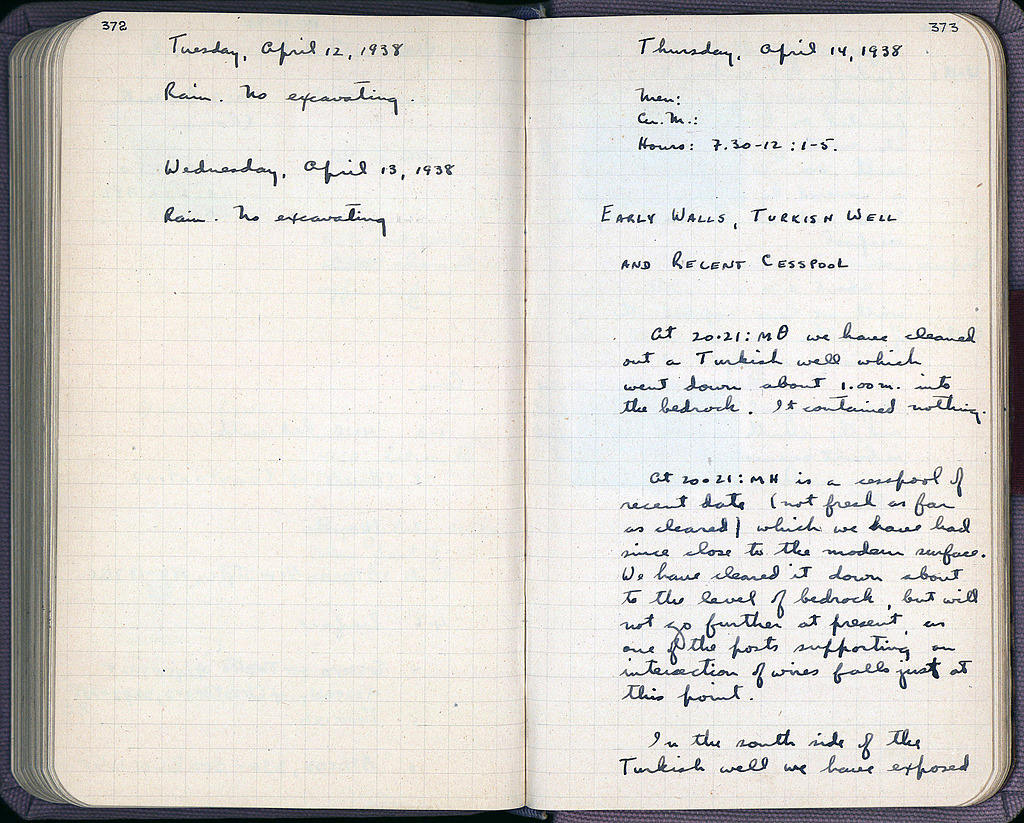 372
Tuesday, April 12, 1938
Rain. No excavating.
Wednesday, April 13, 1938
Rain. No excavating
373
Thursday, April 14, 1938
Men:
Cu. M.:
Hours: 7.30-12 : 1-5.
EARLY WALLS, TURKISH WELL
AND RECENT CESSPOOL
At 20-21:ΜΘ we have cleaned
out a Turkish well which
went down about 1.00 m. into
the bedrock. It contained nothing.
At 20-21:ΜΗ is a cesspool of
recent date (not fresh as far
as cleared) which we have had
since close to the modern surface.
We have cleared it down about
to the level of bedrock, but will
not go further at present, as
one of the posts supporting an
intersection of wires falls just at
this point.
In the south side of the
Turkish well we have exposed